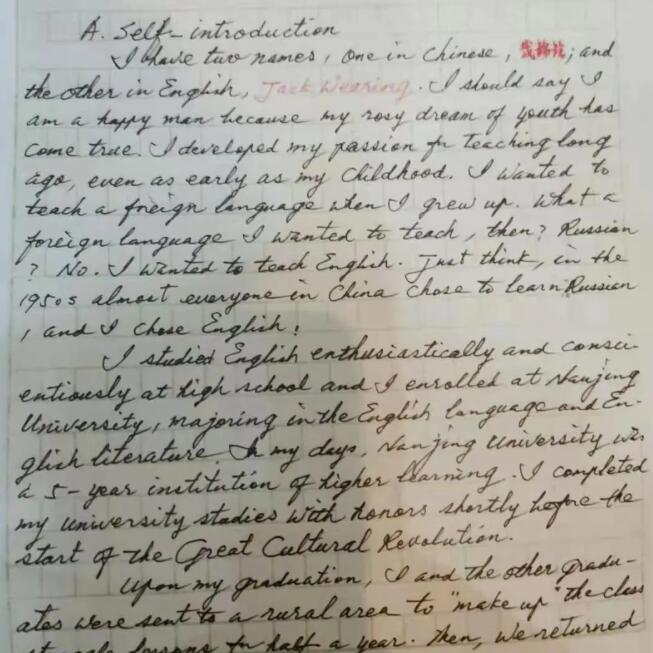 A. Self-introduction
I have two names, one in Chinese, ; and
the other in English, Jack Wearing. I should say I
am a happy man because my rosy dream of youth has
come true. I developed my passion for teaching long
ago, even as early as my childhood. I wanted to
teach a foreign language when I grew up. What a
foreign language I wanted to teach, then? Russian
? No. I wanted to teach English. Just think, in the
1950s almost everyone in China chose to learn Russian
, and I chose English!
I studied English enthusiastically and consci-
entiously at high school and I enrolled at Nanjing
University, majoring in the English language and En-
glish literature. In my days, Nanjing University was
a 5-year institution of higher learning. I completed
my university studies with honors shortly before the
start of the Great Cultural Revolution.
Upon my graduation, I and the other gradu-
ates were sent to a rural area to "make up" the class
struggle lessons for half a year. Then, we returned